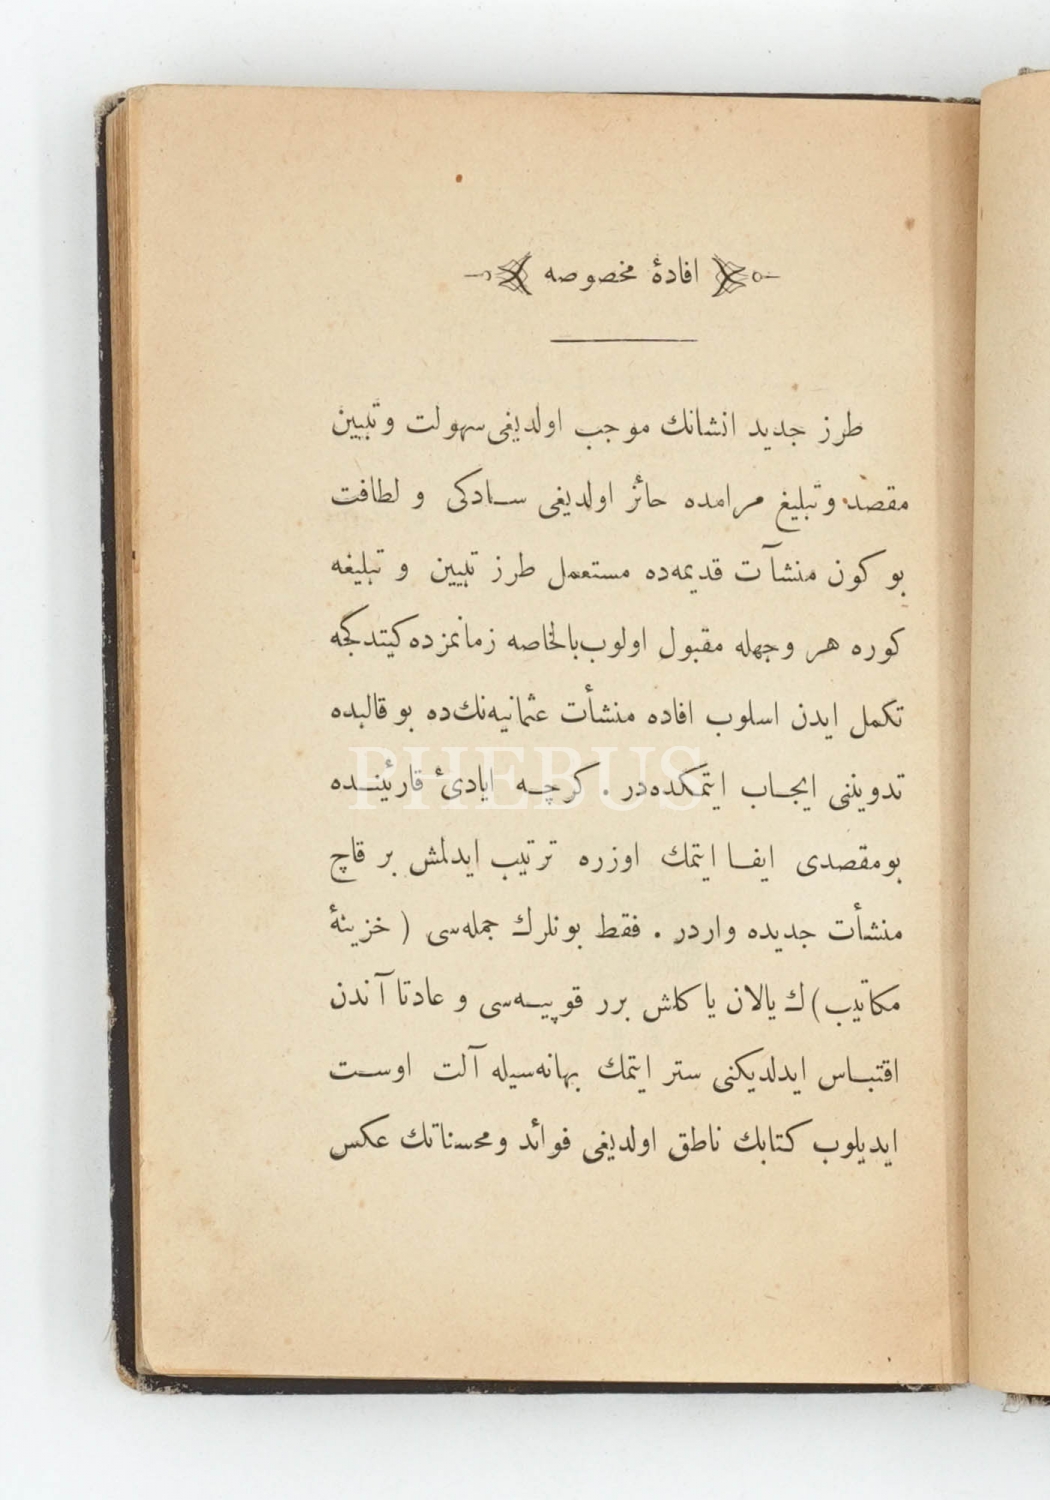 افادهٔ مخصوصه
طرز جديد انشانك موجب اولديغى سهولت وتبيين
مقصد وتبليغ مرامده حائز اولديغى سادكى و لطافت
بو كون منشآت قديمه‌ده مستعمل طرز تبيين و تبليغه
كوره هر وجهله مقبول اولوب بالخاصه زمانمزده كيتدكجه
تكمل ايدن اسلوب افاده منشأت عثمانيه‌نك‌ده بو قالبده
تدوينى ايجاب ايتمكده‌در . كرچه ايادئ قارئينده
بومقصدى ايفا ايتمك اوزره ترتيب ايدلمش بر قاچ
منشأت جديده واردر . فقط بونلرك جمله‌سى ( خزينهٔ
مكاتيب)ك يالان ياكلش برر قوپيه‌سى و عادتا آندن
اقتباس ايدلديكنى ستر ايتمك بهانه‌سيله آلت اوست
ايديلوب كتابك ناطق اولديغى فوائد ومحسناتك عكس
PHEBUS